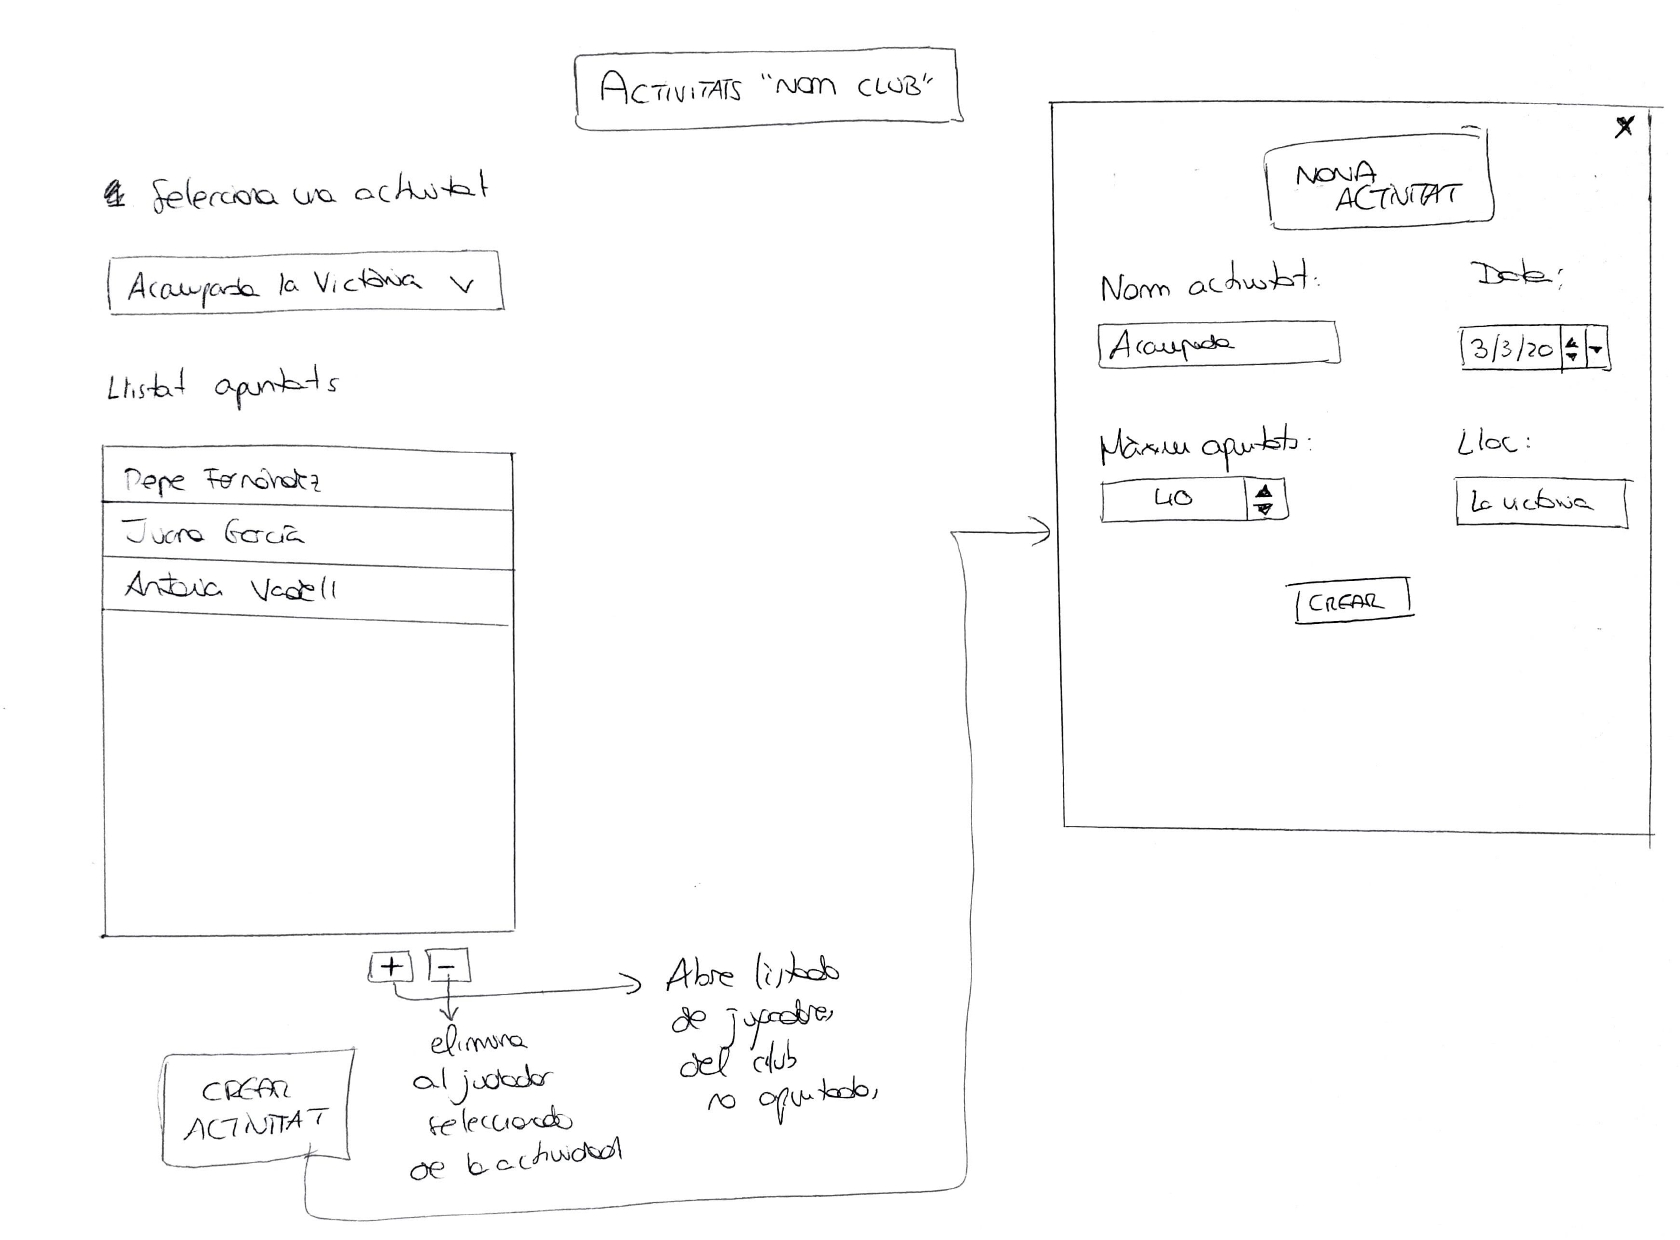 ACTIVITATS "NOM CLUB"
Selecciona una activitat
Acampada la Victòria v
Llistat apuntats
Pepe Fernández
Juana García
Antonia Vadell
+ -
elimina
al jugador
seleccionado
de la actividad
Abre listado
de jugadores
del club
no apuntados
CREAR
ACTIVITAT
X
NOVA
ACTIVITAT
Nom activitat:
Data:
Acampada
3/3/20
Màxim apuntats:
Lloc:
40
La victoria
CREAR